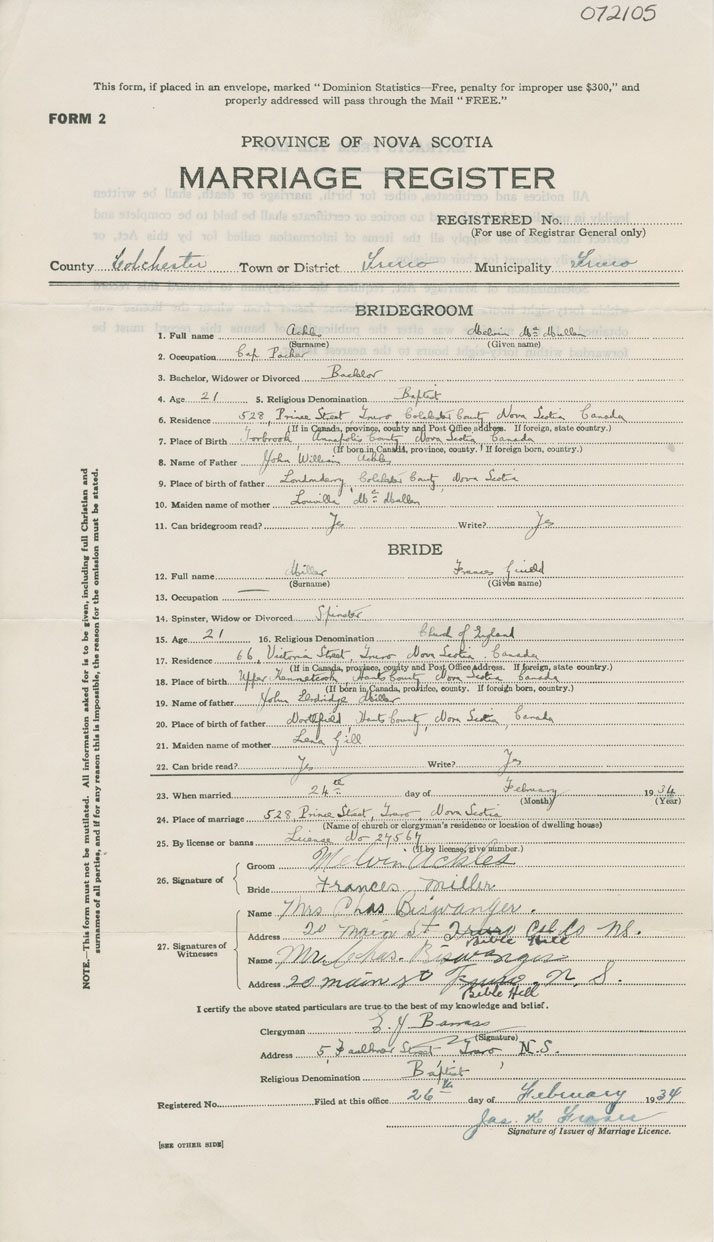 072105
This form, if placed in an envelope, marked "Dominion Statistics—Free, penalty for improper use $300," and
properly addressed will pass through the Mail "FREE."
FORM 2
PROVINCE OF NOVA SCOTIA
MARRIAGE REGISTER
REGISTERED No.
(For use of Registrar General only)
County Colchester Town or District Truro Municipality Truro
BRIDEGROOM
1. Full name Ackles Melvin McMullen
(Surname) (Given name)
2. Occupation Cap
3. Bachelor, Widower or Divorced Bachlor
4. Age 21 5. Religious Denomination Baptist
6. Residence 528, Prince Street, Truro, Colchester County, Nova Scotia Canada
(If in Canada, province, county and Post Office address. If foreign, state country.)
7. Place of Birth Torbrook, Annapolis County, Nova Scotia, Canada
(If born in Canada, province, county. If foreign born, country.)
8. Name of Father John William Ackles
9. Place of birth of father Londonderry, Colchester County, Nova Scotia
10. Maiden name of mother Louvilla McMullen
11. Can bridegroom read? Yes Write? Yes
BRIDE
12. Full name Miller Frances
(Surname) (Given name)
13. Occupation —
14. Spinster, Widow or Divorced Spinster
15. Age 21 16. Religious Denomination Church of England
17. Residence 66, Victoria Street, Truro Nova Scotia, Canada
(If in Canada, province, county and Post Office address. If foreign, state country.)
18. Place of birth Upper Kennetcook, Hants County, Nova Scotia Canada
(If born in Canada, province, county. If foreign born, country.)
19. Name of father John Miller
20. Place of birth of father Northfield, Hants County, Nova Scotia, Canada
21. Maiden name of mother Lena Gill
22. Can bride read? Yes Write? Yes
23. When married 24th day of February 1934
(Month) (Year)
24. Place of marriage 528, Prince Street, Truro, Nova Scotia
(Name of church or clergyman's residence or location of dwelling house)
25. By license or banns License No 27567
(If by license, give number.)
26. Signature of
Groom Melvin Ackles
Bride Frances Miller
27. Signatures of Witnesses
Name Mrs Chas Biswanger.
Address 20 Main St Truro Col. Co NS.
Bible Hill
Name Mr. Chas. Biswanger
Address 20 main st Truro, N. S.
Bible Hill
I certify the above stated particulars are true to the best of my knowledge and belief.
Clergyman
(Signature)
Address 5, Faulkner Street Truro N.S.
Religious Denomination Baptist
Registered No. Filed at this office 26th day of February 1934
Jas. K. Fraser
Signature of Issuer of Marriage Licence.
[SEE OTHER SIDE]
NOTE.—This form must not be mutilated. All information asked for is to be given, including full Christian and
surnames of all parties, and if for any reason this is impossible, the reason for the omission must be stated.